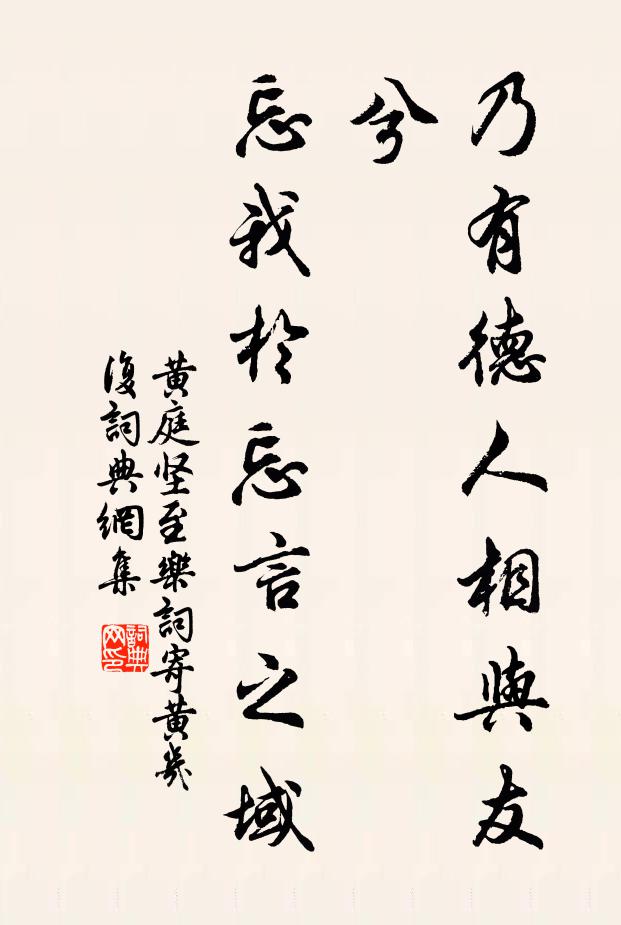 乃有德人相與友
兮
忘我於忘言之域
黄庭坚至樂詞寄黄幾
復詞典網集
詞典
网印